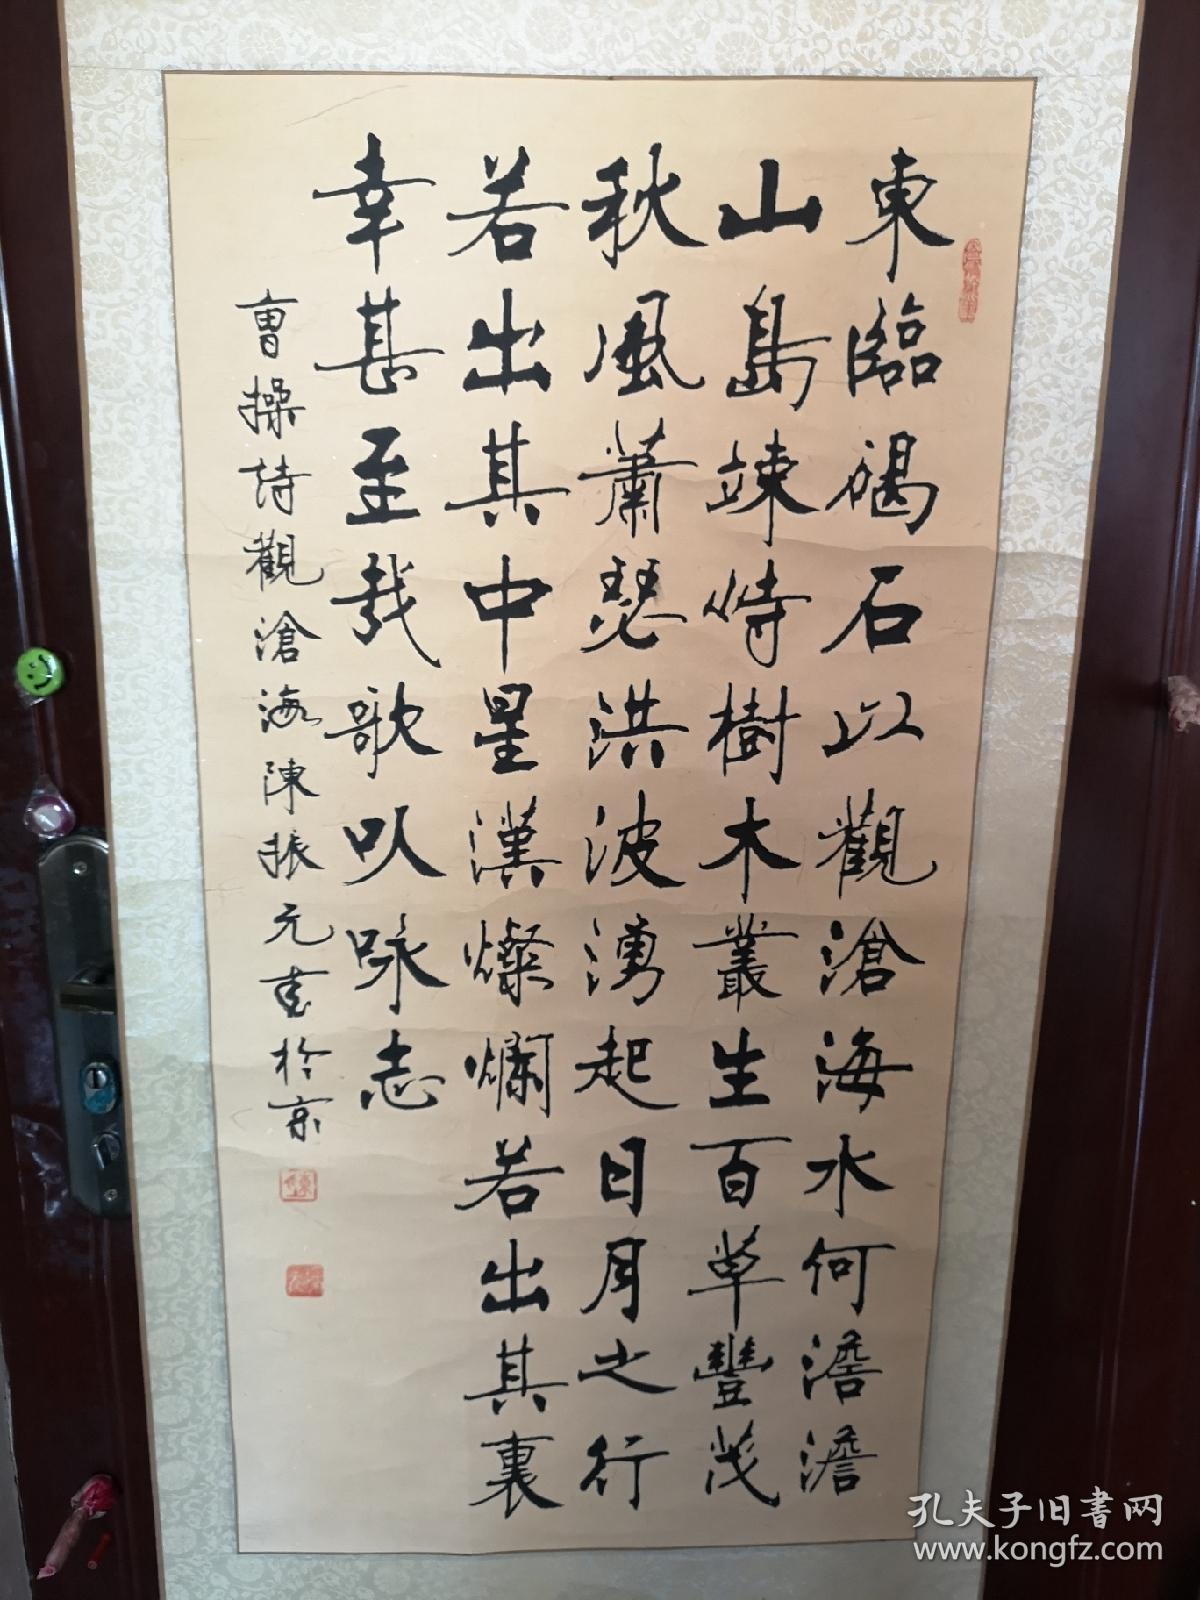 東臨碣石以觀滄海水何澹澹
山島竦峙樹木叢生百草豐茂
秋風蕭瑟洪波湧起日月之行
若出其中星漢燦爛若出其裏
幸甚至哉歌以咏志
曹操詩觀滄海陳振元書於京
孔夫子旧书网
www.kongfz.com